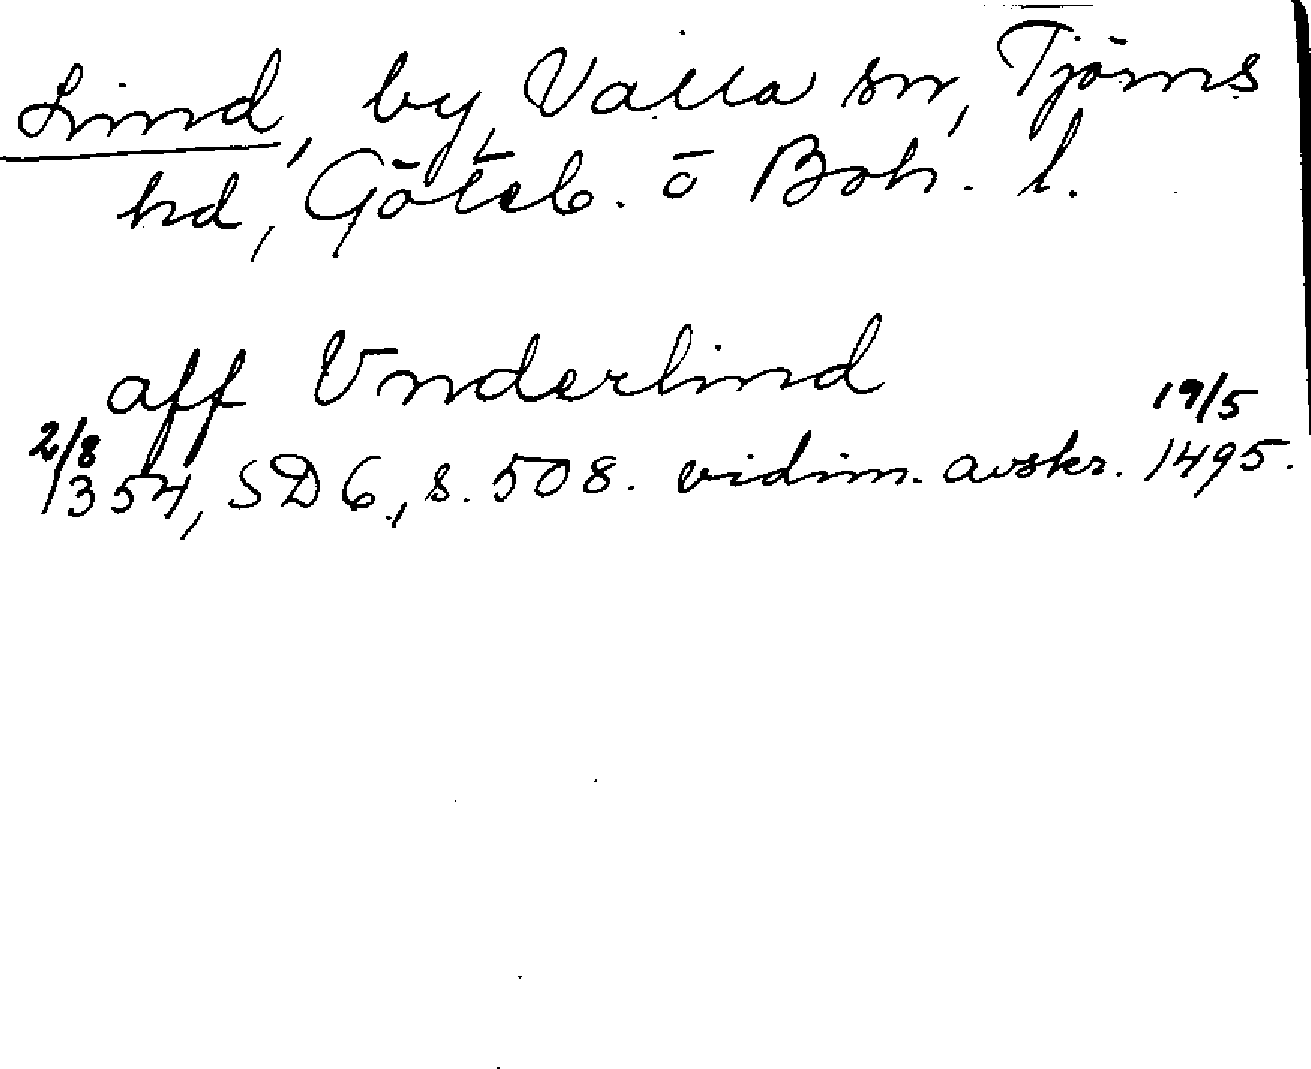 Lind, by, Valla sn, Tjörns
hd, Göteb. o Boh. l.
aff Vnderlind
2/8 19/5
1354, SD 6, s. 508. vidim. avskr. 1495.